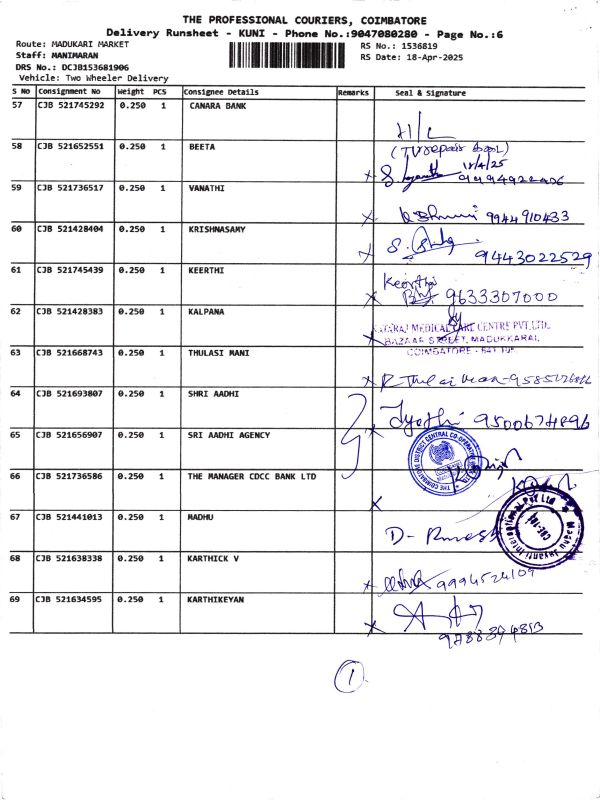 THE PROFESSIONAL COURIERS, COIMBATORE
Delivery Runsheet - KUNI - Phone No.:9047080280 - Page No.:6
Route: MADUKARI MARKET
Staff: MANIMARAN
DRS No.: DCJB153681906
Vehicle: Two Wheeler Delivery
RS No.: 1536819
RS Date: 18-Apr-2025
S No Consignment No Weight PCS Consignee Details Remarks Seal & Signature
57 CJB 521745292 0.250 1 CANARA BANK H/L
(TV repair
58 CJB 521652551 0.250 1 BEETA 18/4/25
59 CJB 521736517 0.250 1 VANATHI 9944910433
60 CJB 521428404 0.250 1 KRISHNASAMY 9443022529
61 CJB 521745439 0.250 1 KEERTHI Keerthi
9633307000
62 CJB 521428383 0.250 1 KALPANA
MEDICAL CARE CENTRE PVT.LTD.
BAZAAR STREET, MADUKKARAI,
COIMBATORE
63 CJB 521668743 0.250 1 THULASI MANI
64 CJB 521693807 0.250 1 SHRI AADHI Jyothi 9500674896
65 CJB 521656907 0.250 1 SRI AADHI AGENCY
THE COIMBATORE DISTRICT CENTRAL CO-OPERATIVE
66 CJB 521736586 0.250 1 THE MANAGER CDCC BANK LTD
67 CJB 521441013 0.250 1 MADHU D-
Madhu Jayanti International Pvt Ltd
68 CJB 521638338 0.250 1 KARTHICK V 9994524109
69 CJB 521634595 0.250 1 KARTHIKEYAN
1